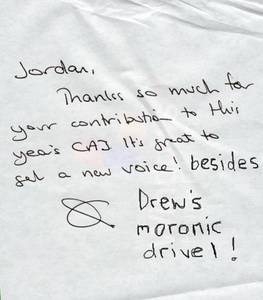 Jordan,
Thanks so much for
your contribution to this
year's CAJ It's great to
get a new voice! besides
Drew's
moronic
drivel!